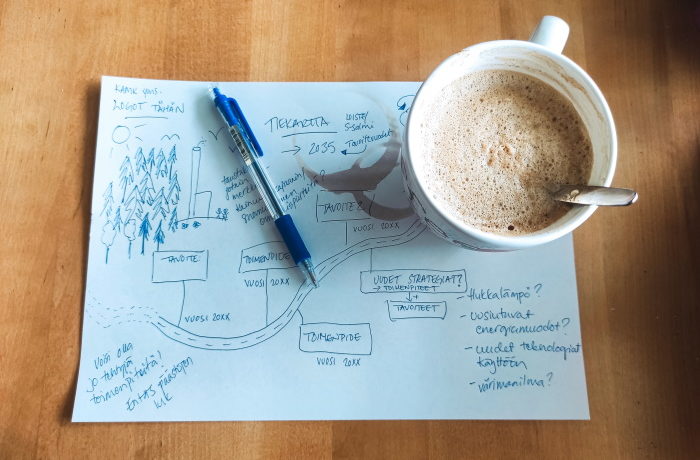 LOGOT TÄHÄN
TIEKARTTA
→ 2035
Tavoitevuodet
TAVOITE 2
VUOSI 20XX
TAVOITE
TOIMENPIDE
VUOSI 20XX
VUOSI 20XX
UUDET STRATEGIAT?
→ TOIMENPITEET
+
TAVOITTEET
TOIMENPIDE
VUOSI 20XX
- Hukkalämpö?
- uusiutuvat
energiamuodot?
- uudet teknologiat
käyttöön
- värimaailma?
Voisi olla
jo tehtyjä
toimenpiteitä!
Entäs päästöjen